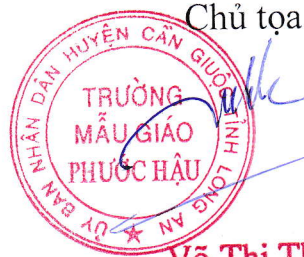 Chủ tọa
ỦY BAN NHÂN DÂN HUYỆN CẦN GIUỘC TỈNH LONG AN
TRƯỜNG
MẪU GIÁO
PHƯỚC HẬU
Võ Thị